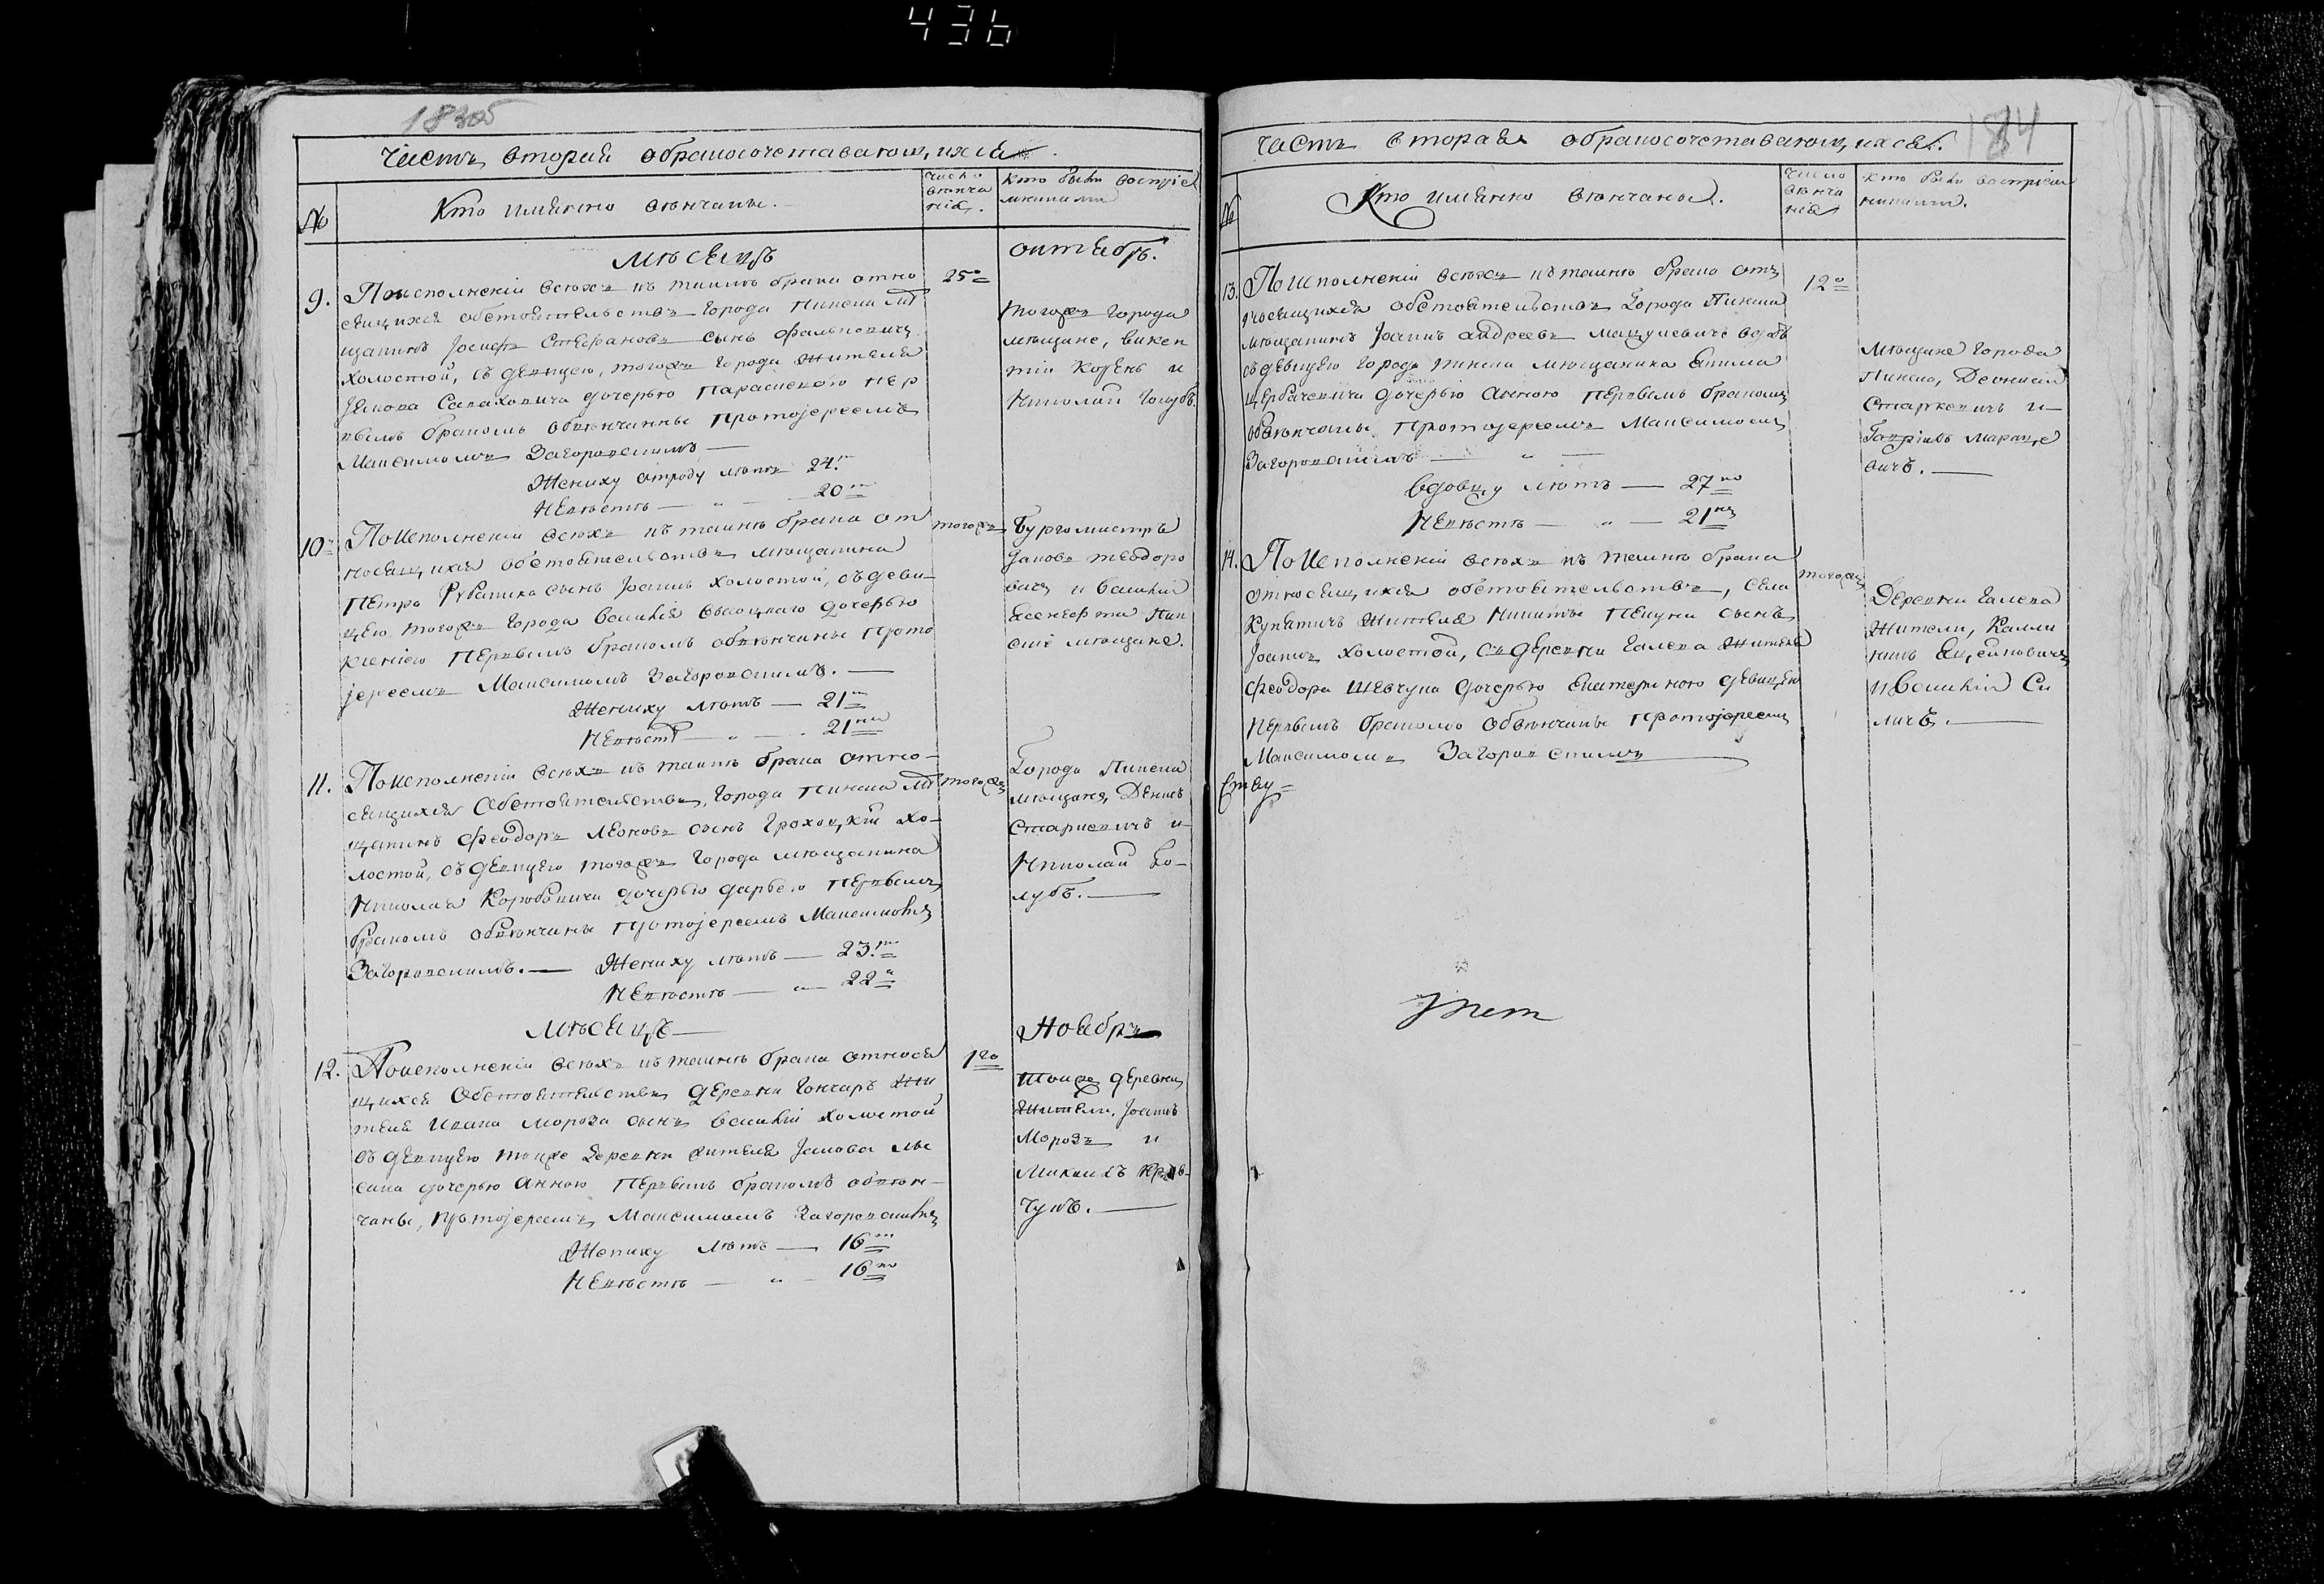 436
1835
Часть вторая обракосочетавающихся.
№
Кто имянно венчаны.
число венча нія.
Кто были воспріе мниками
Мѣсяцъ Октябрь.
9. Поисполненіи всѣхъ къ таинѣ брака отно
сящихся обстоятельствъ города Пинска мѣ
щанинъ Іосифъ Стефановъ сынъ
холостой, съ девицею, тогожъ города жителя
Іякова дочерью Параскевою пер
вымъ бракомъ обвѣнчанны протоіереемъ
Максимомъ Загоровскимъ
Жениху отроду лѣтъ 24.
Невѣстѣ — „ — 20
25о
тогожъ города
мѣщане, Викен
тій Корень и
Николай Голубъ.
10 Поисполненіи всѣхъ къ таинѣ брака от
носящихся обстоятельствъ мѣщанина
Петра сынъ Іоаннъ холостой, съ деви-
цею тогожъ города Василія дочерью
Ксеніею первымъ бракомъ обвѣнчаны прото
іереемъ Максимомъ Загоровскимъ. —
Жениху лѣтъ — 21
Невѣстѣ — „ — 21
тогожъ
Бургомистръ
Іаковъ Теодоро
вичъ и Василій
Пин
скіе мѣщане.
11. Поисполненіи всѣхъ къ таинѣ брака отно-
сящихся обстоятельствъ, города Пинска мѣ
щанинъ Феодоръ Леоновъ сынъ Грохоцкій хо-
лостой, съ девицею тогожъ города мѣщанина
Николая дочерью Дарьею первымъ
бракомъ обвѣнчаны протоіереемъ Максимомъ
Загоровскимъ. — Жениху лѣтъ — 23.
Невѣстѣ — „ — 22
тогожъ
Города Пинска
мѣщаня, Денисъ
Старкевичъ и
Николай Го-
лубъ. —
Мѣсяцъ — Ноябрь
12. Поисполненіи всѣхъ къ таинѣ брака относя
щихся обстоятельствъ деревни Гончаръ жи
теля Ивана Мороза сынъ Василій холостой
съ девицею тоиже деревни жителя Іакова
дочерью Анною первымъ бракомъ обвѣн-
чаны, протоіереемъ Максимомъ Загоровскимъ
Жениху лѣтъ — 16
Невѣстѣ — „ — 16
12о
тоиже деревни
жители, Іоаннъ
Морозъ и
Михаилъ Крав-
чукъ. —
184
Часть вторая обракосочетавающихся.
№
Кто имянно венчаны.
число венча нія
кто были воспріем никами.
13. Поисполненіи всѣхъ къ таинѣ брака от
носящихся обстоятельствъ города Пинска
мѣщанинъ Іоаннъ Андреевъ Мацукевичъ вдовъ
съ девицею города Пинска мѣщанина
Щербачевича дочерью Анною первымъ бракомъ
обвѣнчаны протоіереемъ Максимомъ
Загоровскимъ — „ —
Вдовцу лѣтъ — 27
Невѣстѣ — „ — 21
12о
Мѣщане города
Пинска, Деонисій
Старкевичъ и
Гавріилъ
вичъ. —
14. Поисполненіи всѣхъ къ таинѣ брака
относящихся обстоятельствъ, села
Купятичъ жителя Никиты сынъ
Іоаннъ холостой, съ деревни Галева жителя
Феодора Шевчука дочерью Екатериною девицею
первымъ бракомъ обвѣнчаны протоіереемъ
Максимомъ Загоровскимъ
тогожъ
Деревни Галева
жители,
и Василій Си
личъ. —